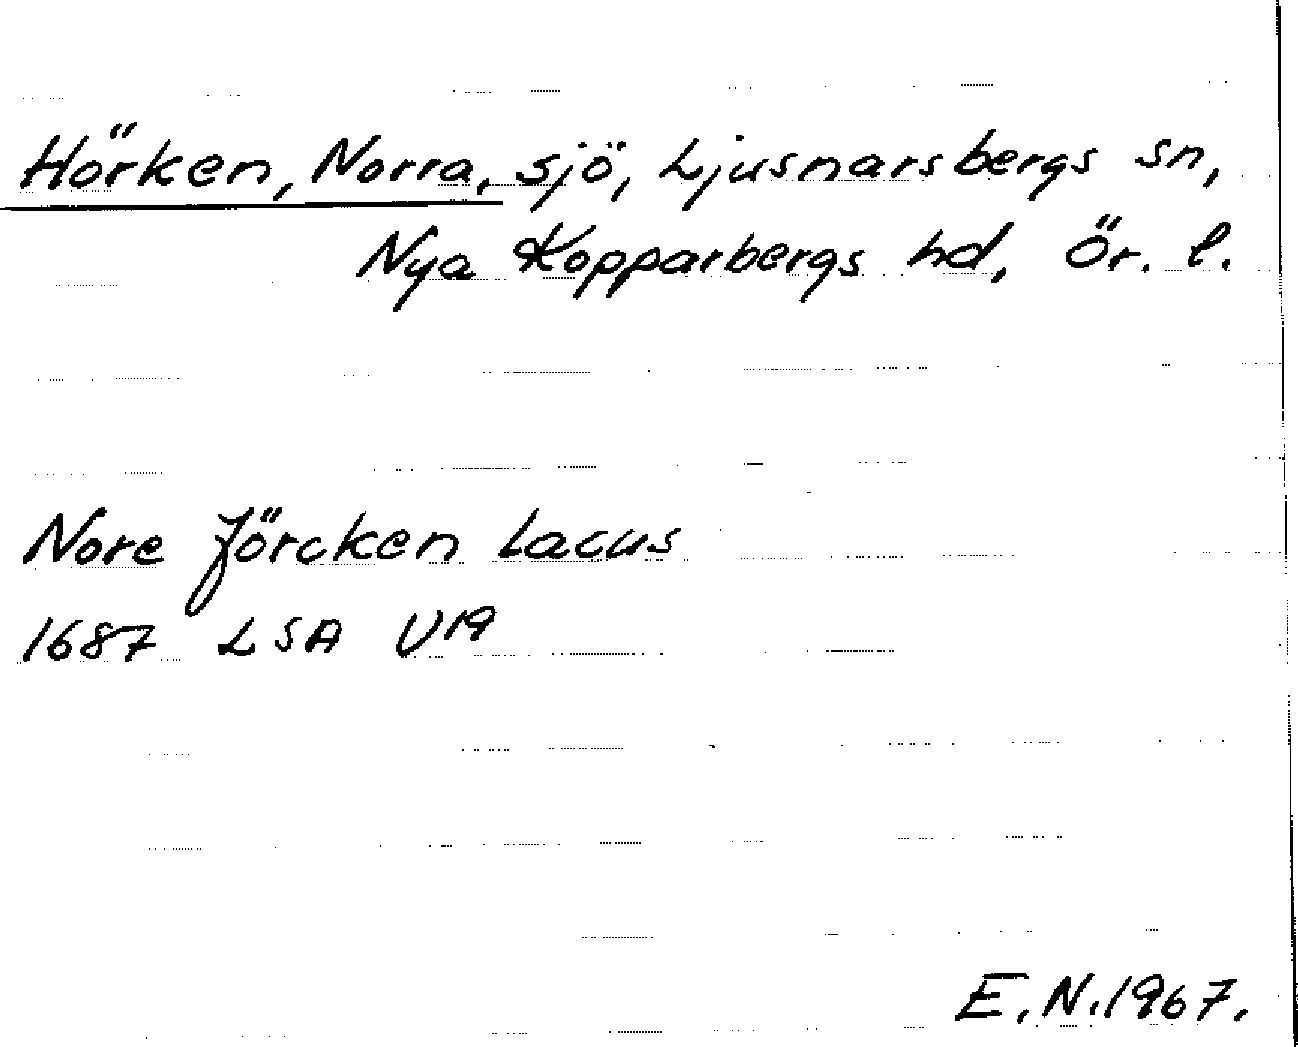 Hörken, Norra, sjö, Ljusnarsbergs sn,
Nya Kopparbergs hd, Ör. l.
Nore Jörcken Lacus
1687 LSA U19
E.N. 1967.